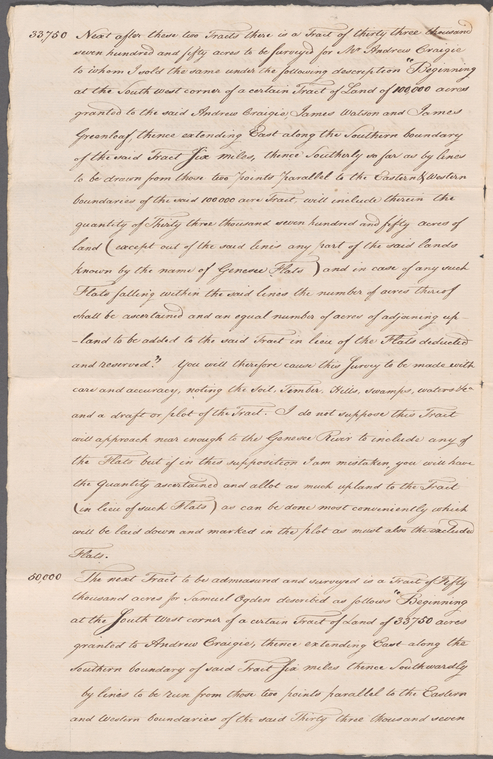 33,750 Next after these two Tracts there is a Tract of thirty three thousand
seven hundred and fifty acres to be surveyed for Mr. Andrew Craigie
to whom I sold the same under the following description "Beginning
at the South west corner of a certain Tract of Land of 100,000 acres
granted to the said Andrew Craigie, James Watson and James
Greenleaf, thence extending East along the Southern boundary
of the said Tract Six miles, thence Southerly so far as by lines
to be drawn from those two points parallel to the Eastern & Western
boundaries of the said 100,000 acre Tract, will include therein the
quantity of Thirty three thousand seven hundred and fifty acres of
land (except out of the said lines any part of the said lands
known by the name of Genesee Flats) and in case of any such
Flats falling within the said lines the number of acres thereof
shall be ascertained and an equal number of acres of adjoining up-
-land to be added to the said Tract in lieu of the Flats deducted
and reserved." You will therefore cause this Survey to be made with
care and accuracy, noting the Soil, Timber, Hills, swamps, waters &c
and a draft or plot of the Tract. I do not suppose this Tract
will approach near enough to the Genesee River to include any of
the Flats but if in this supposition I am mistaken you will have
the Quantity ascertained and allot as much upland to the Tract
(in lieu of such Flats) as can be done most conveniently which
will be laid down and marked in the plot as must also the excluded
Flats.
50,000 The next Tract to be admeasured and surveyed is a Tract of Fifty
thousand acres for Samuel Ogden described as follows "Beginning
at the South West corner of a certain Tract of Land of 33,750 acres
granted to Andrew Craigie, thence extending East along the
Southern boundary of said Tract Six miles thence Southwardly
by lines to be run from those two points parallel to the Eastern
and Western boundaries of the said Thirty three thousand seven